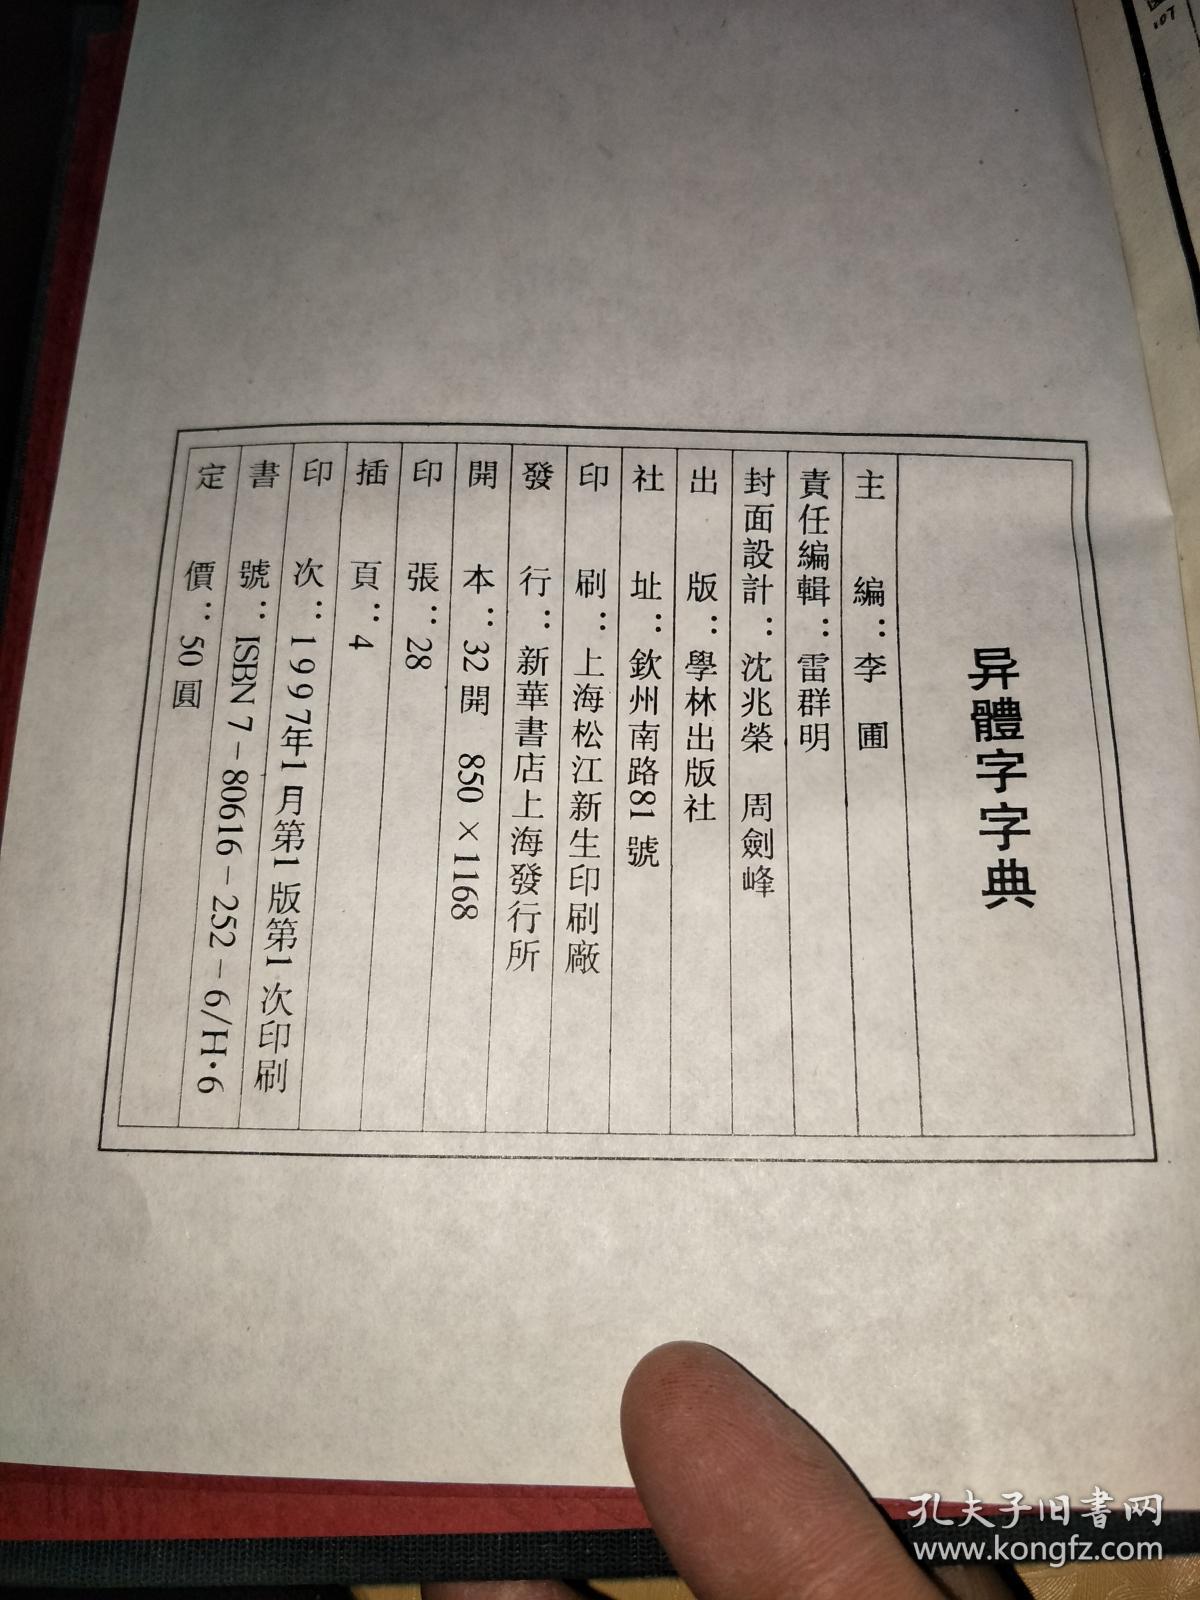 异體字字典
主編：李圃
責任編輯：雷群明
封面設計：沈兆榮 周劍峰
出版：學林出版社
社址：欽州南路81號
印刷：上海松江新生印刷廠
發行：新華書店上海發行所
開本：32開 850×1168
印張：28
插頁：4
印次：1997年1月第1版第1次印刷
書號：ISBN 7-80616-252-6/H·6
定價：50圓
107
孔夫子旧书网
www.kongfz.com